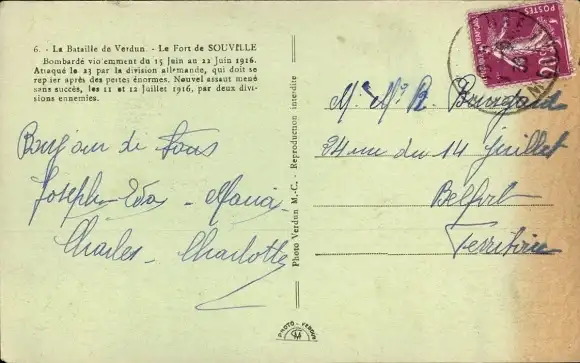 6. - La Bataille de Verdun. - Le Fort de SOUVILLE
Bombardé violemment du 15 Juin au 22 Juin 1916.
Attaqué le 23 par la division allemande, qui doit se
replier après des pertes énormes. Nouvel assaut mené
sans succès, les 11 et 12 Juillet 1916, par deux divi-
sions ennemies.
Bonjour de Tous
Joseph - Eva - Maria,
Charles - Charlotte
Photo Verdun M.-C. - Reproduction interdite
PHOTO - VERDUN
POSTES
M. Mme R. Bourgard
24 rue du 14 Juillet
Belfort
Territoire